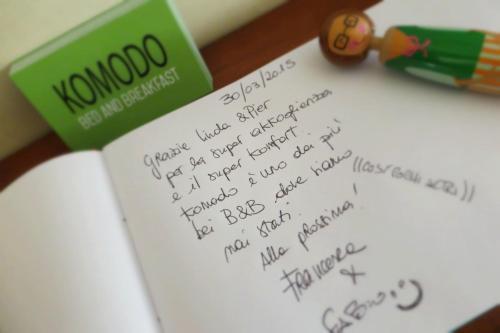 KOMODO
BED AND BREAKFAST
30/03/2015
Grazie Linda & Pier
per la super akkoglienza
e il super komfort.
Komodo è uno dei più
bei B&B dove siamo
mai stati!
Alla prossima!
Francesca
x